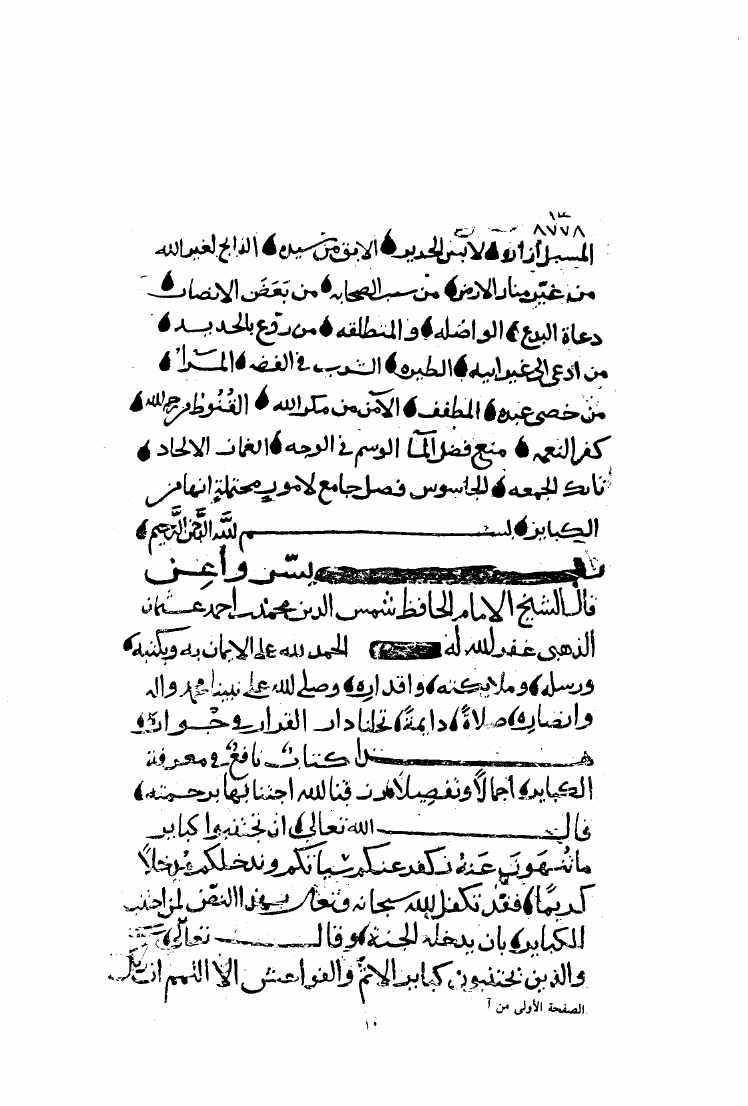 ٨٧٧٨
المسبل ازاره لابس الحرير الابق من سيده الذابح لغير الله
من غير منار الارض من سب الصحابه من بغض الانصار
دعاة البدع الواصله و المتطلقه من روع بالحديد
من ادعى الى غير ابيه الطيره الشرب في الفضه المراء
من خصى عبده المطفف الآمن من مكر الله القنوط من رحمة الله
كفر النعمه منع فضل الماء الوسم في الوجه القمار الالحاد
تارك الجمعه الجاسوس فصل جامع لامور محتملة انها من
الكباير بسم الله الرحمن الرحيم
يسر واعن
قال الشيخ الامام الحافظ شمس الدين محمد بن احمد بن عثمان
الذهبى غفر الله له الحمد لله على الايمان به وبكتبه
ورسله وملايكته واقداره وصلى الله على نبينا محمد واله
وانصاره صلاة دايمة تحلنا دار القرار في جواره
هذا كتاب نافع في معرفة
الكباير اجمالا وتفصيلا رزقنا الله اجتنابها برحمته
قال الله تعالى ان تجتنبوا كباير
ما تنهون عنه نكفر عنكم سياتكم وندخلكم مدخلا
كريما فقد تكفل الله سبحانه وتعالى بهذا النص لمن اجتنب
الكباير بان يدخله الجنة وقال تعالى
والذين يجتنبون كباير الاثم والفواحش الا اللمم ان ربك
الصفحة الأولى من آ
١٠